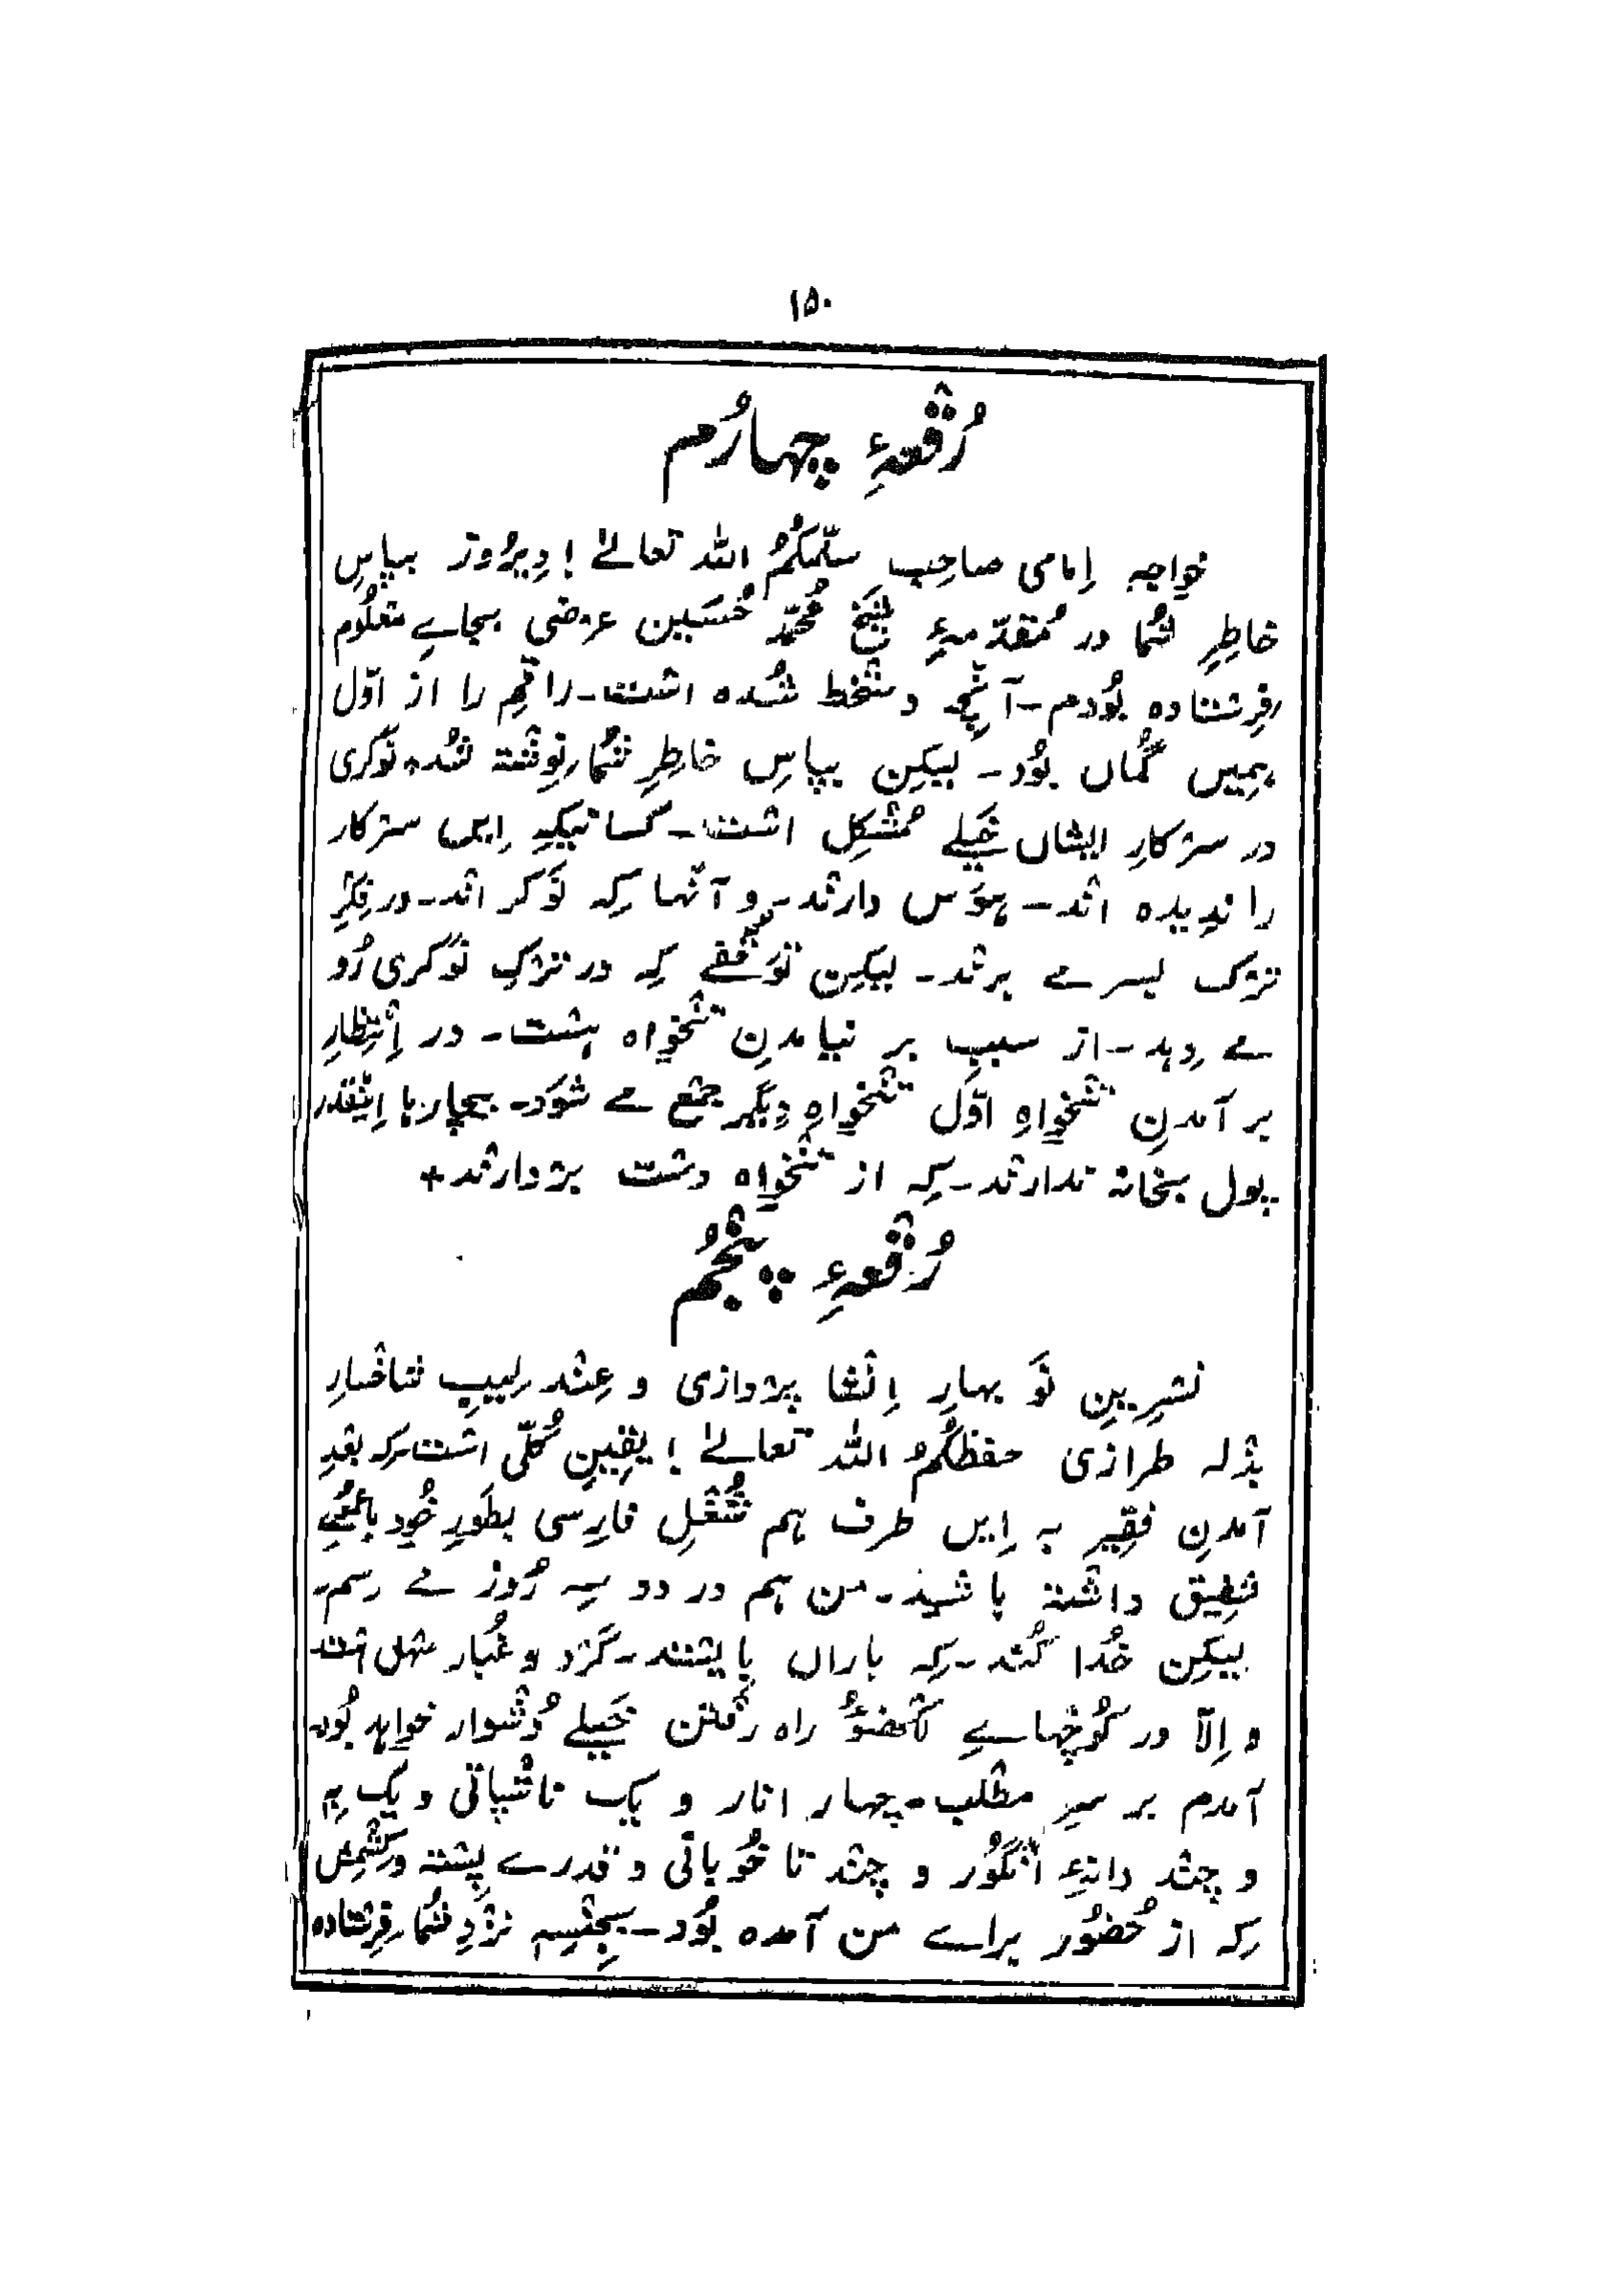 ۱۵۰
رُقعۂ چہارُم
خواجہ اِمامی صاحِب سلّمکُمُ اللہ تعالےٰ ! دِیرُوز بپاسِ
خاطِرِ شُما در مُقدّمۂِ شیخ مُحمّد حُسَین عرضی بجاےِ معلُوم
فِرِستادہ بُودم ـ آنچہ دستخط شُدہ است ـ راقِم را از اوّل
ہمِیں گُماں بُود ـ لیکِن بپاسِ خاطِرِ شُما نوِشتہ شُدہ نَوکری
در سرکارِ ایشاں خَیلے مُشکِل است ـ کسانیکہ اِیں سرکار
را ندِیدہ اند ـ ہوَس دارند ـ و آنہا کہ نَوکر اند ـ در فِکرِ
ترک بسر مے برند ـ لیکِن توَقُّفے کہ در ترکِ نَوکری رُو
مے دِہد ـ از سببِ بر نیامدنِ تنخواہ ہست ـ در اِنتِظارِ
بر آمدنِ تنخواہِ اوّل تنخواہِ دِیگر جمع مے شوَد ـ بیچارہا اِینقدر
پول بخانہ ندارند ـ کہ از تنخواہ دست بردارند +
رُقعۂ پنجُم
نسرِینِ نَو بہارِ اِنشا پردازی و عِندلِیبِ شاخسارِ
بذلہ طرازی حفظکُمُ اللہ تعالےٰ ! یقِینِ کُلّی است کہ بعدِ
آمدنِ فقِیر بہ اِیں طرف ہم شُغلِ فارِسی بطَورِ خُود با
شفِیق داشتہ باشید ـ من ہم در دو سِہ رُوز مے رسم ـ
لیکِن خُدا کُند ـ کہ باراں بایستد ـ گرد و غُبار سہل است
و اِلّا در کُوچہاےِ لکھنؤُ راہ رفتن خَیلے دُشوار خواہد بُود
آمدم بر سرِ مطلب ـ چہار انار و یک ناشپاتی و یک بِہ
و چند دانۂ انگُور و چند تا خُوبانی و قدرے پِستہ و کِشمِش
کہ از حُضُور براے من آمدہ بُود ـ بجِنسِہٖ نزدِ شُما فِرِستادہ